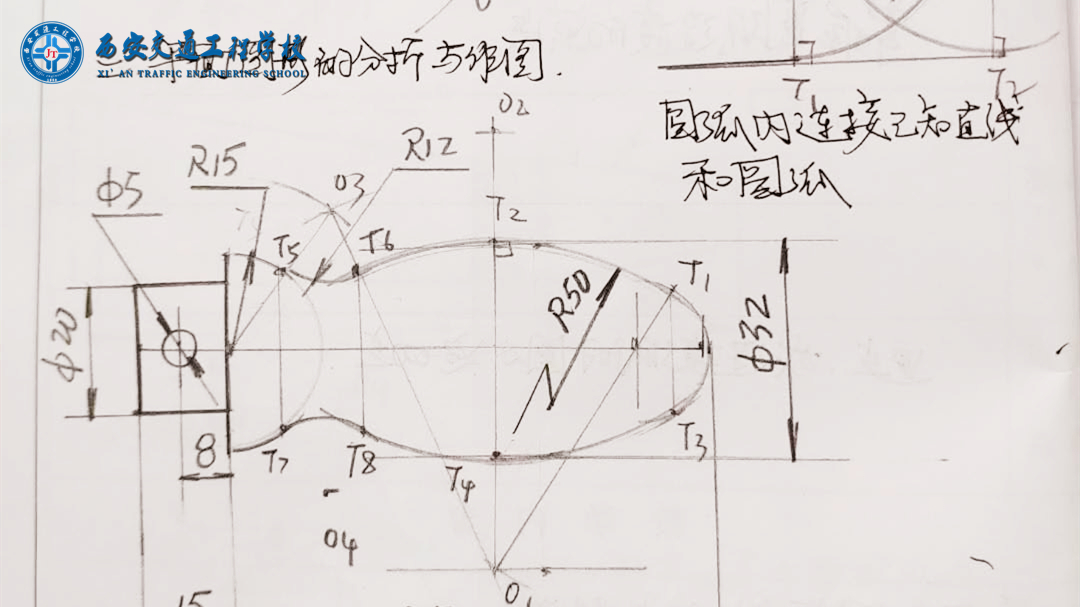 西安交通工程学校
XI' AN TRAFFIC ENGINEERING SCHOOL
的分析与作图.
T1
T2
圆弧内连接已知直线
和圆弧
O2
R12
R15
O3
Φ5
T2
T5
T6
T1
R50
Φ20
Φ32
8
T7
T8
T4
T3
O4
O1
15